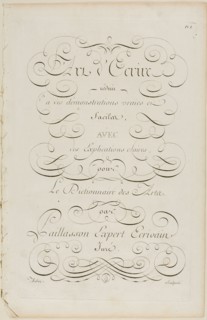 Art d'Ecrire
réduit
a des démonstrations vraies et
faciles
AVEC
des Explications claires
pour
Le Dictionnaire des Arts
par
Paillasson Expert Ecrivain
Juré